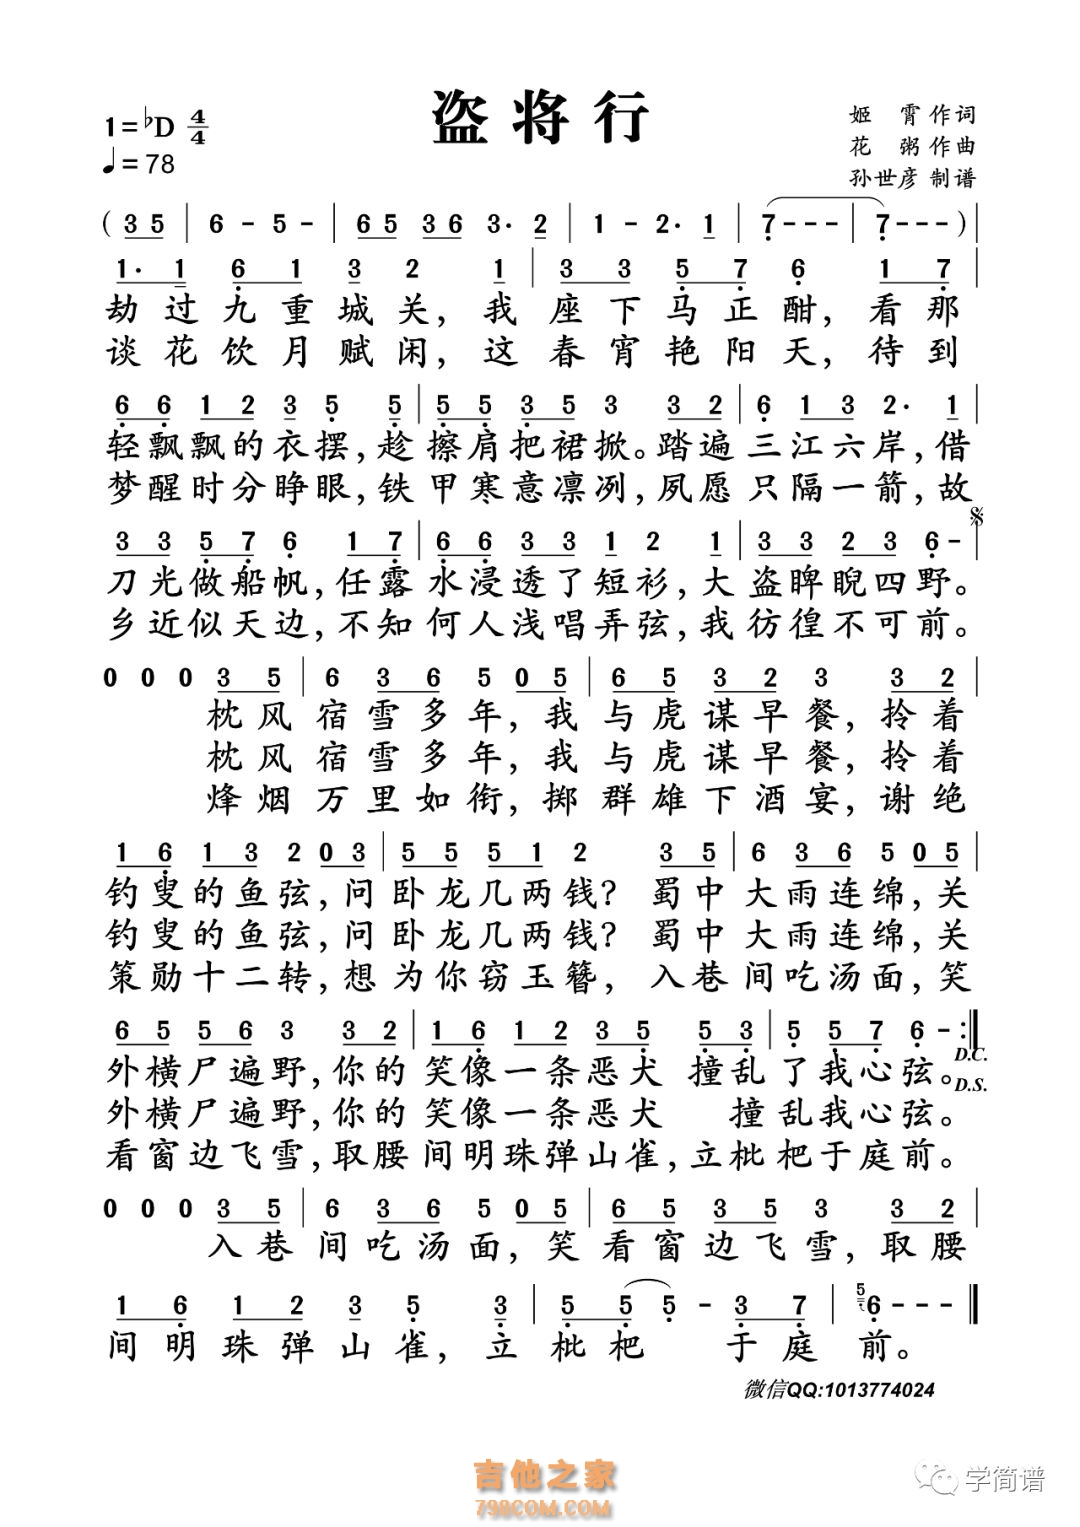 盗将行
1=♭D 4/4
♩=78
姬 霄 作词
花 粥 作曲
孙世彦 制谱
( 3 5 | 6 - 5 - | 6 5 3 6 3· 2 | 1 - 2· 1 | 7 - - - | 7 - - - ) |
1· 1 6 1 3 2 1 | 3 3 5 7 6 1 7
劫过九重城关,我座下马正酣,看那
谈花饮月赋闲,这春宵艳阳天,待到
6 6 1 2 3 5 5 | 5 5 3 5 3 3 2 | 6 1 3 2· 1
轻飘飘的衣摆,趁擦肩把裙掀。踏遍三江六岸,借
梦醒时分睁眼,铁甲寒意凛冽,夙愿只隔一箭,故
3 3 5 7 6 1 7 | 6 6 3 3 1 2 1 | 3 3 2 3 6 - |
刀光做船帆,任露水浸透了短衫,大盗睥睨四野。
乡近似天边,不知何人浅唱弄弦,我彷徨不可前。
0 0 0 3 5 | 6 3 6 5 0 5 | 6 5 3 2 3 3 2 |
枕风宿雪多年,我与虎谋早餐,拎着
枕风宿雪多年,我与虎谋早餐,拎着
烽烟万里如衔,掷群雄下酒宴,谢绝
1 6 1 3 2 0 3 | 5 5 5 1 2 3 5 | 6 3 6 5 0 5 |
钓叟的鱼弦,问卧龙几两钱?蜀中大雨连绵,关
钓叟的鱼弦,问卧龙几两钱?蜀中大雨连绵,关
策勋十二转,想为你窃玉簪,入巷间吃汤面,笑
6 5 5 6 3 3 2 | 1 6 1 2 3 5 5 3 | 5 5 7 6 - :‖
外横尸遍野,你的笑像一条恶犬 撞乱了我心弦。D.C.
D.S.
外横尸遍野,你的笑像一条恶犬 撞乱我心弦。
看窗边飞雪,取腰间明珠弹山雀,立枇杷于庭前。
0 0 0 3 5 | 6 3 6 5 0 5 | 6 5 3 5 3 3 2 |
入巷间吃汤面,笑看窗边飞雪,取腰
1 6 1 2 3 5 3 | 5 5 5 - 3 7 | 5 6 - - - ‖
间明珠弹山雀,立枇杷 于庭前。
微信QQ:1013774024
吉他之家
798COM.COM
学简谱